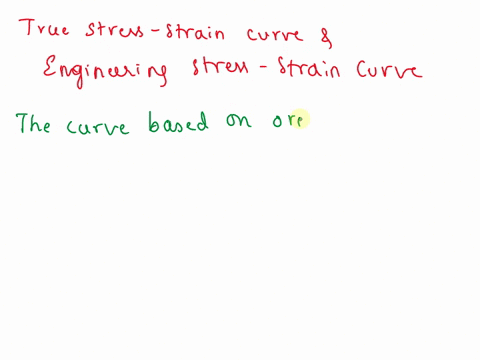 True stress-strain curve &
Engineering stress-strain curve
The curve based on ore